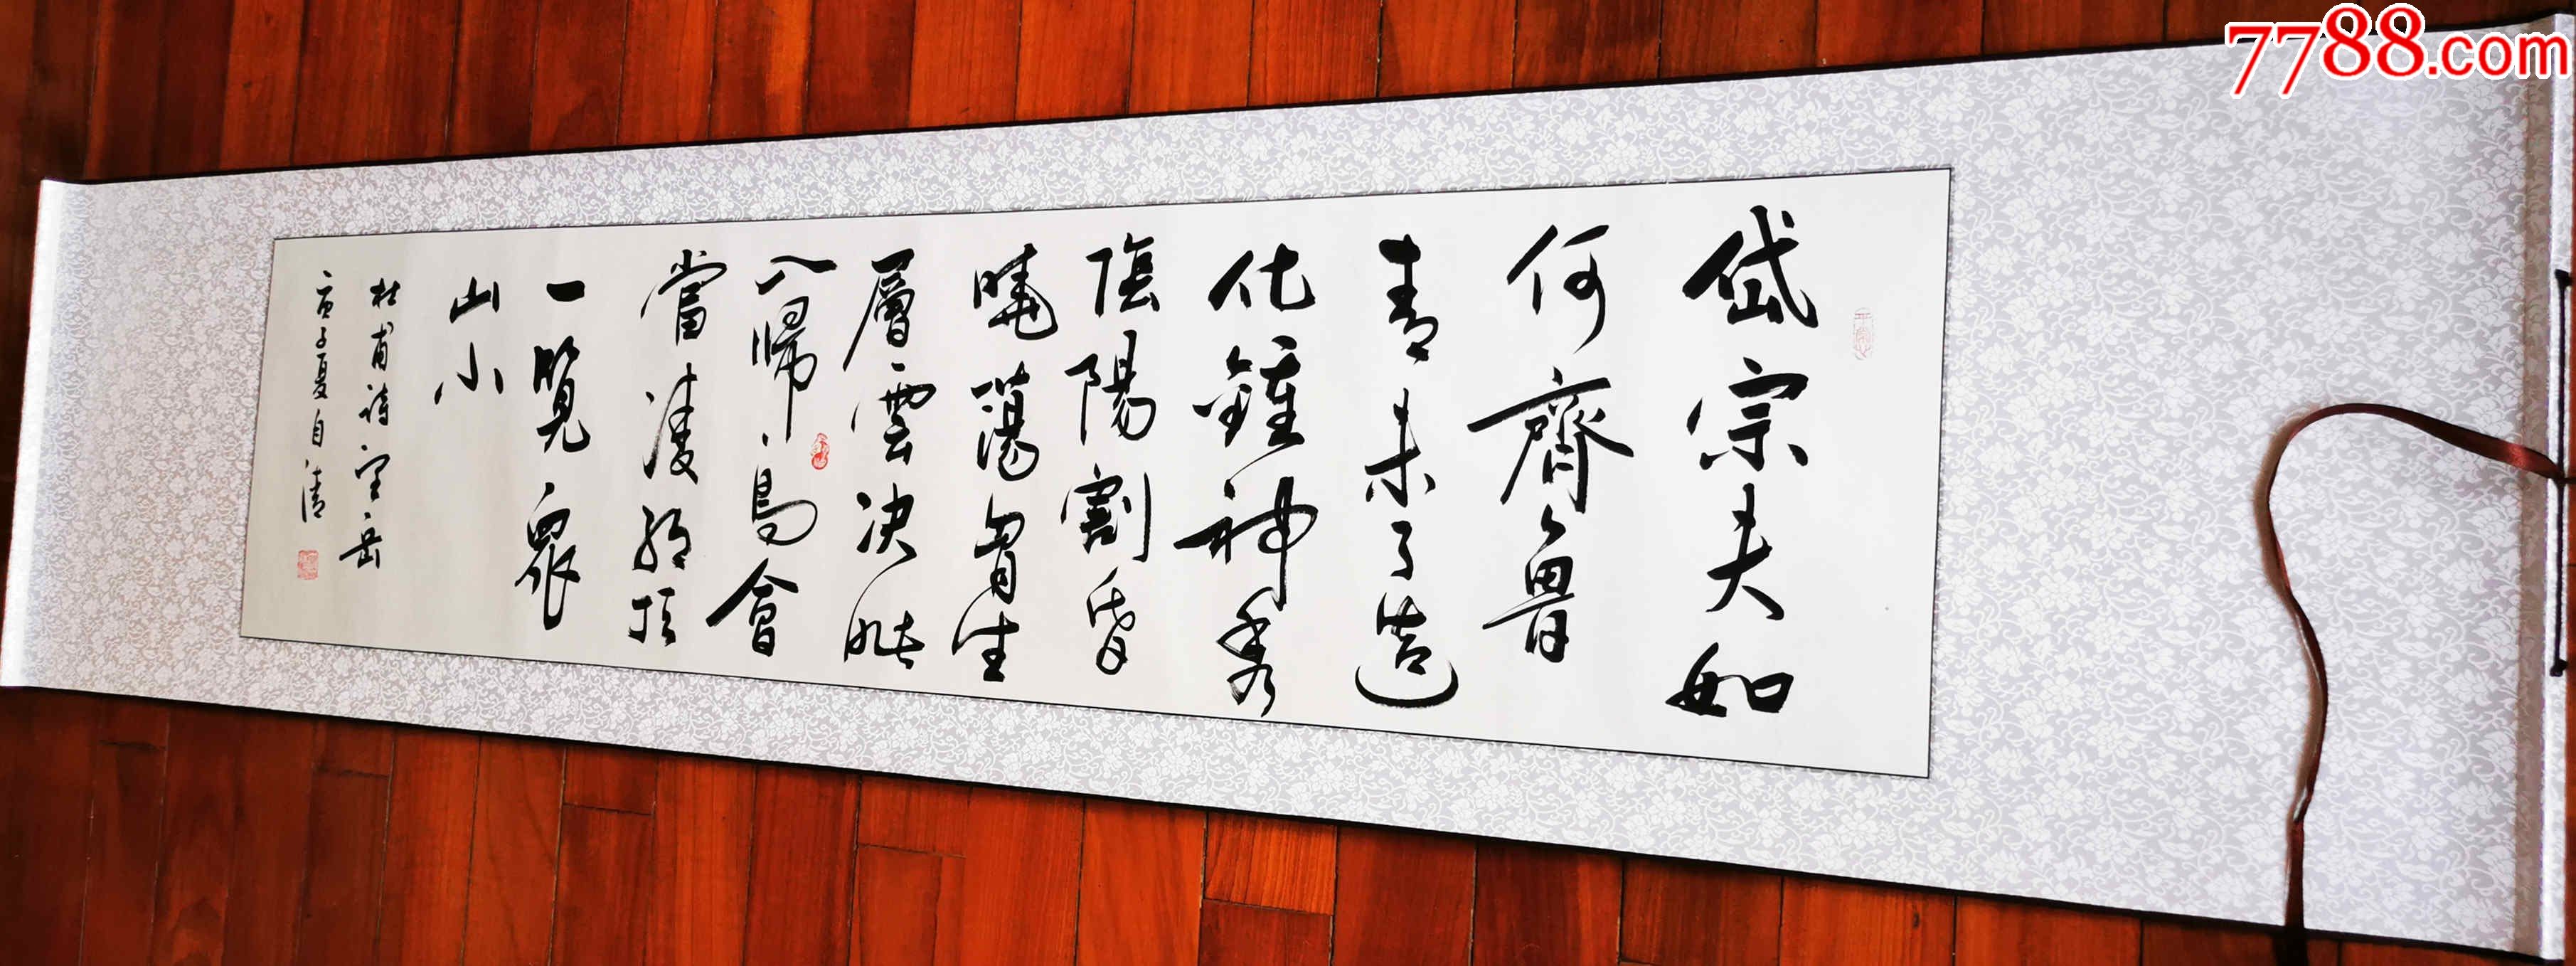 7788.com
岱宗夫如
何齊魯
青未了造
化鍾神秀
陰陽割昏
曉蕩胷生
層雲決眦
入歸鳥會
當凌絕頂
一覽眾
山小
杜甫詩望岳
庚子夏自清